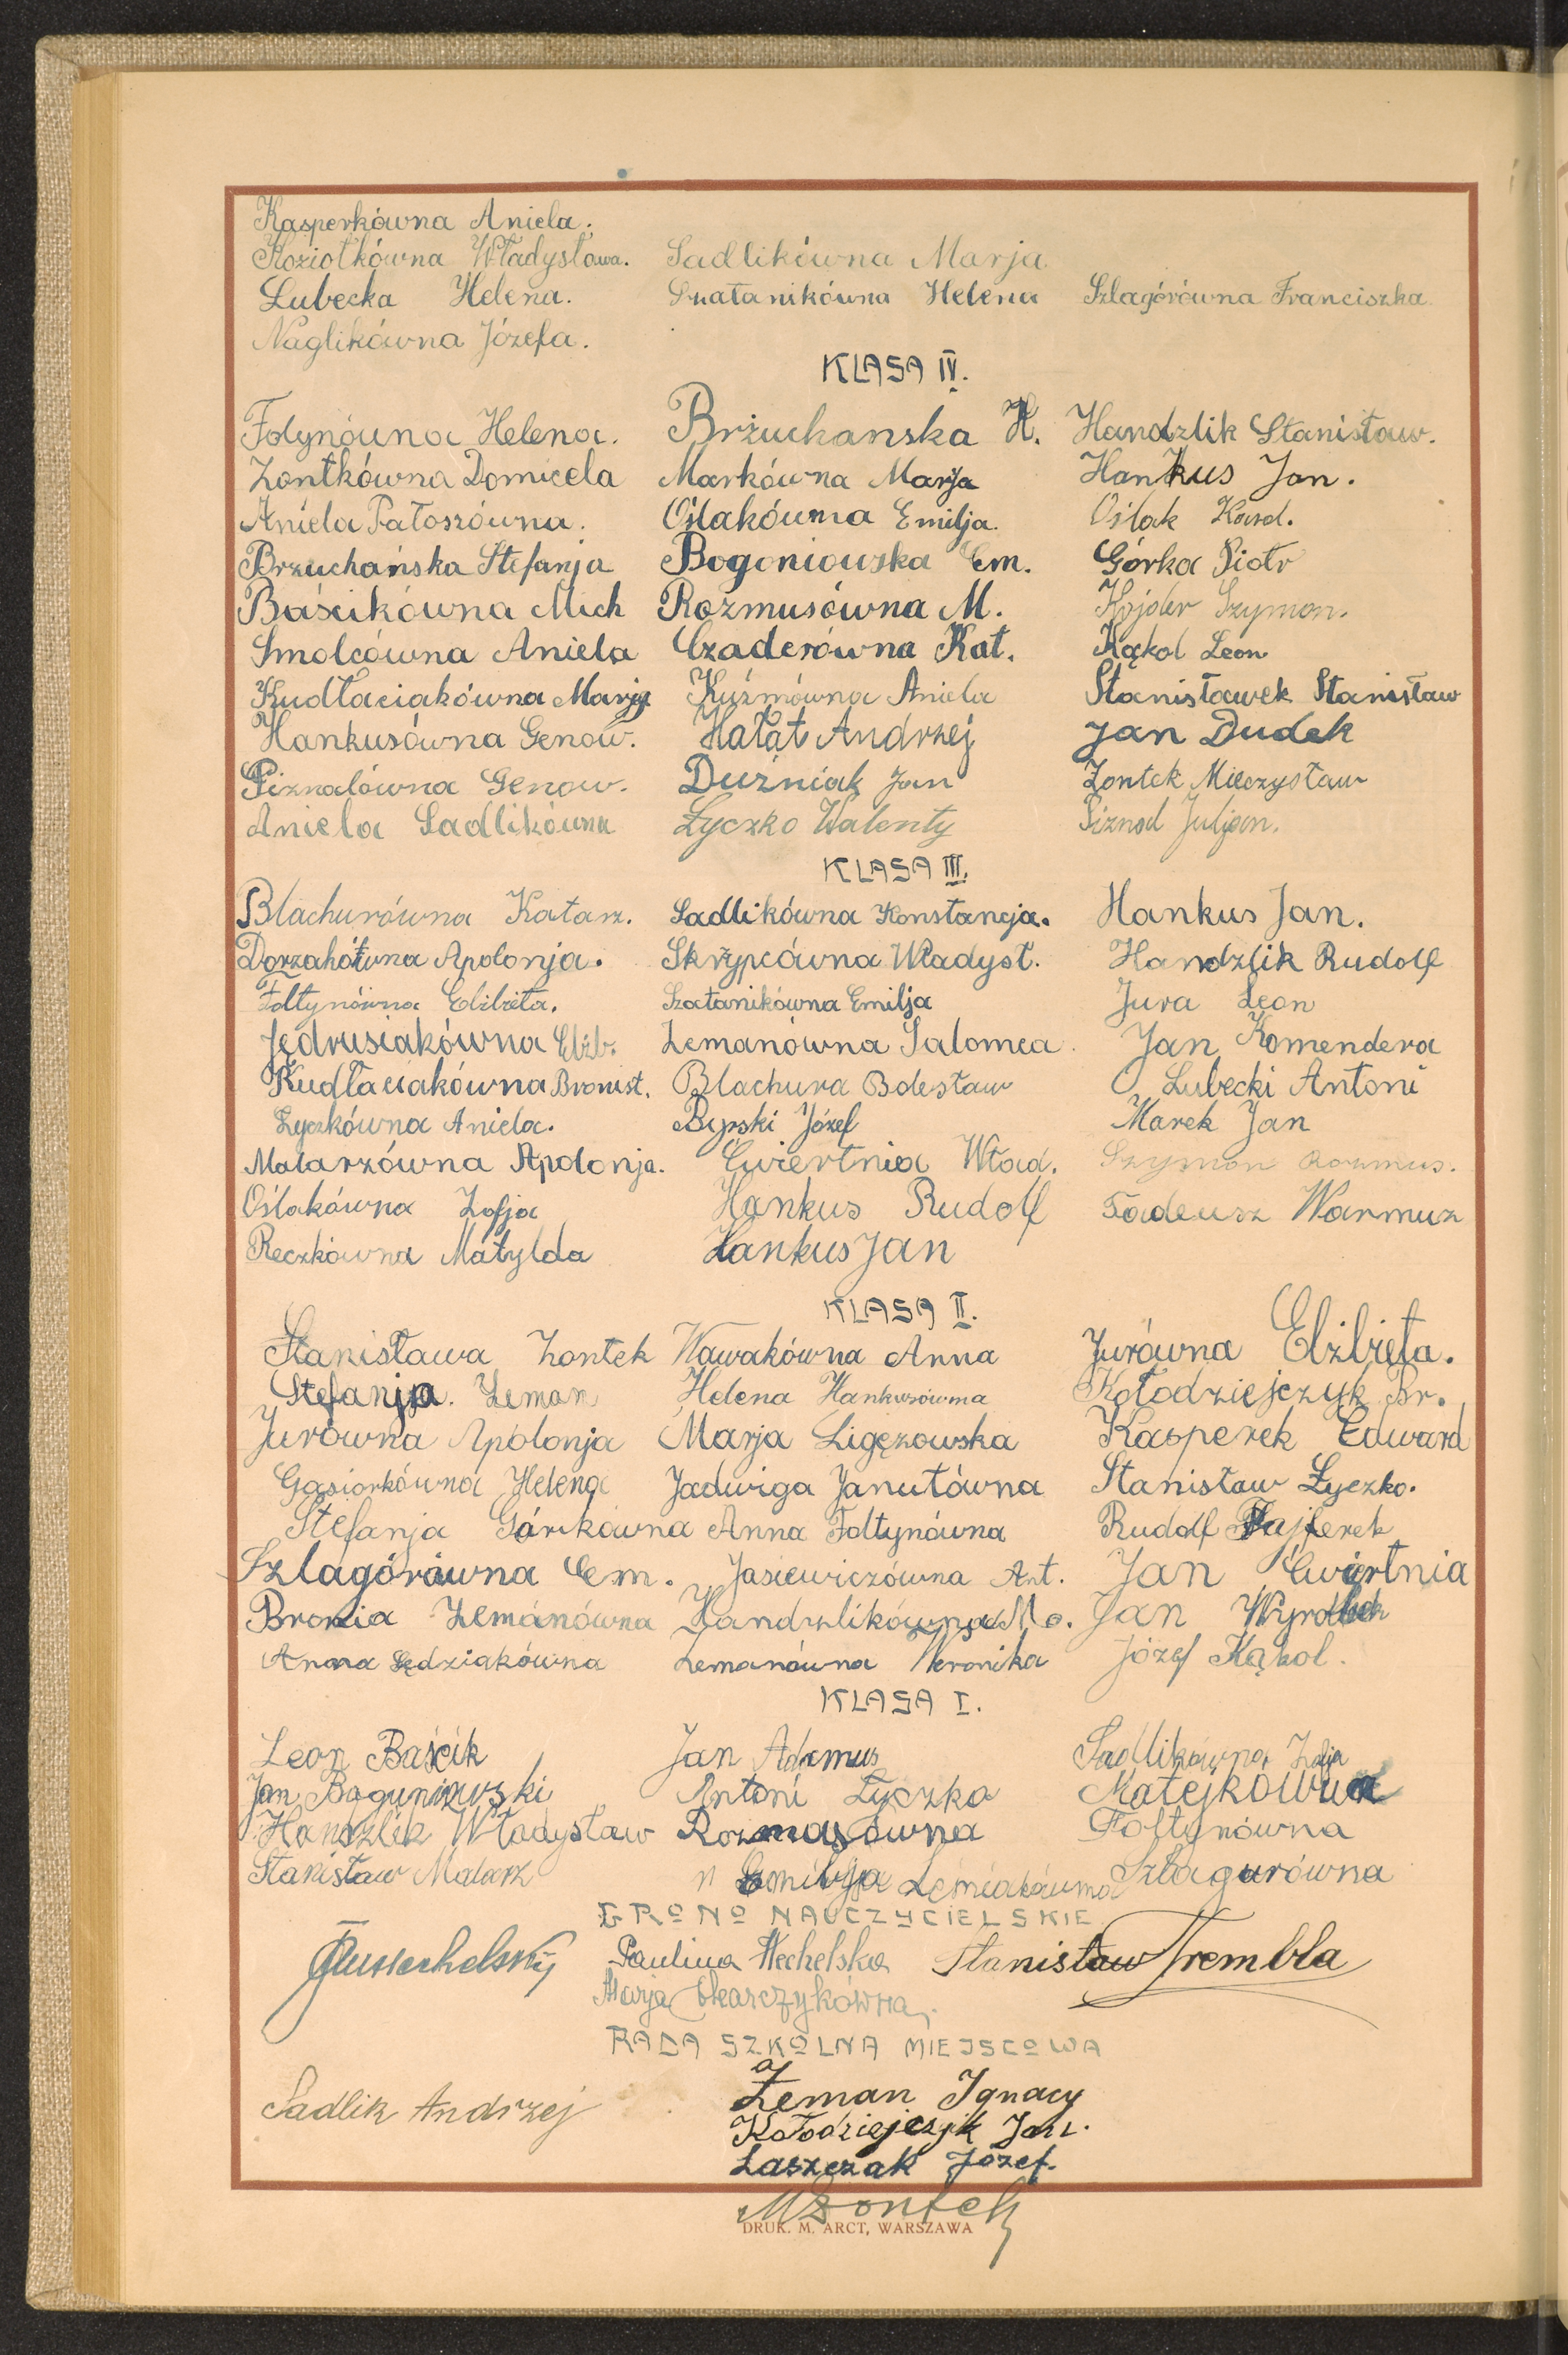 Kasperkówna Aniela.
Koziołkówna Władysława. Sadlikówna Marja
Lubecka Helena. Szatanikówna Helena Szlagórówna Franciszka.
Naglikówna Józefa.
KLASA IV.
Folynówna Helena. Brzuchanska H. Handzlik Stanisław.
Zontkówna Domicela Markówna Marja Hankus Jan.
Aniela Patoszówna. Oślakówna Emilja. Oślak Karol.
Brzuchańska Stefanja Bogoniowska Em. Górka Piotr
Baścikówna Mich Rozmusówna M. Kojder Szymon.
Smolcówna Aniela Czaderówna Kat. Kąkol Leon
Kudłaciakówna Marja Kuźmówna Aniela Stanisławek Stanisław
Hankusówna Genow. Hałat Andrzej Jan Dudek
Piznalówna Genow. Duźniak Jan Zontek Mieczysław
Aniela Sadlikówna Łyczko Walenty Piznal Juljan.
KLASA III.
Blachurówna Katarz. Sadlikówna Konstancja. Hankus Jan.
Apolonja. Skrzypcówna Władysł. Handzlik Rudolf
Foltynówna Elżbieta. Szatanikówna Emilja Jura Leon
Jędrusiakówna Elżb. Zemanówna Salomea Jan Komendera
Kudłaciakówna Bronisł. Blachura Bolesław Lubecki Antoni
Łyczkówna Aniela. Byrski Józef Marek Jan
Malarzówna Apolonja. Ćwiertnia Wład. Szymon Rozmus.
Oślakówna Zofja Hankus Rudolf Tadeusz Warmuz
Reczkówna Matylda Hankus Jan
KLASA II.
Stanisława Zontek Wawakówna Anna Jurówna Elżbieta.
Stefanja. Zeman Helena Hankusówna Kołodziejczyk Br.
Jurówna Apolonja Marja Ligęzowska Kasperek Edward
Gąsiorkówna Helena Jadwiga Janutówna Stanisław Łyczko.
Stefanja Górkówna Anna Foltynówna Rudolf Fajferek
Szlagórówna Em. Jasiewiczówna Ant. Jan Ćwiertnia
Bronia Zemanówna Handzlikówna Ma. Jan
Anna Sędziakówna Zemanówna Weronika Józef Kąkol.
KLASA I.
Leon Baścik Jan Adamus Sadlikówna Zofja
Jan Boguniowski Antoni Łyczko Matejkówna
Handzlik Władysław Rozmusówna Foltynówna
Stanisław Malarz Emilja Szlagurówna
GRONO NAUCZYCIELSKIE
Paulina Wechelska Stanisław Trembla
Marja
RADA SZKOLNA MIEJSCOWA
Sadlik Andrzej Zeman Ignacy
Kołodziejczyk Jan.
Laszczak Józef.
MZontek
DRUK. M. ARCT, WARSZAWA